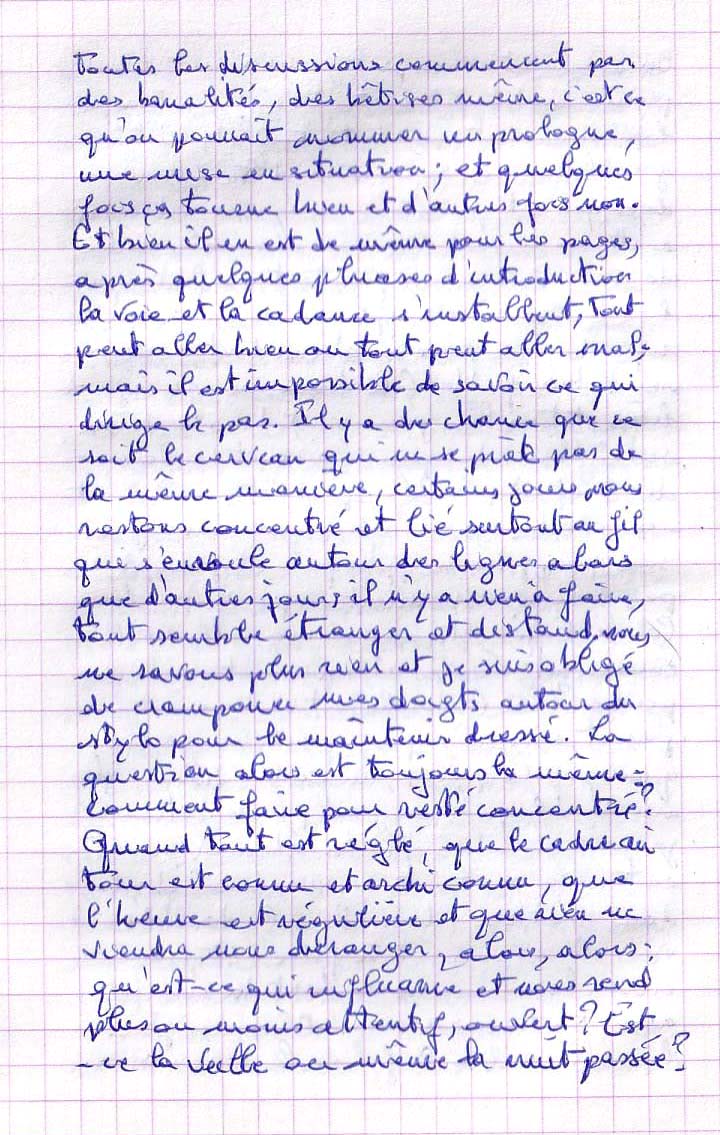 toutes les discussions commencent par
des banalités, des bêtises même, c'est ce
qu'on pourrait nommer un prologue,
une mise en situation ; et quelques
fois ça tourne bien et d'autres fois non.
Et bien il en est de même pour les pages,
après quelques phrases d'introduction
la voie et la cadance s'installent, tout
peut aller bien ou tout peut aller mal,
mais il est impossible de savoir ce qui
dirige le pas. Il y a des chances que ce
soit le cerveau qui ne se prête pas de
la même manière, certains jours nous
restons concentré et lié surtout au fil
qui s'enroule autour des lignes alors
que d'autres jours il n'y a rien à faire,
tout semble étranger et distand, nous
ne savons plus rien et je suis obligé
de cramponer mes doigts autour du
stylo pour le maintenir dressé. La
question alors est toujours la même :
comment faire pour resté concentré ?
Quand tout est réglé, que le cadre au
tour est connu et archi connu, que
l'heure est régulière et que rien ne
viendra nous déranger, alors, alors :
qu'est-ce qui influance et nous rend
plus ou moins attentif, ouvert ? Est
-ce la veille ou même la nuit passée ?